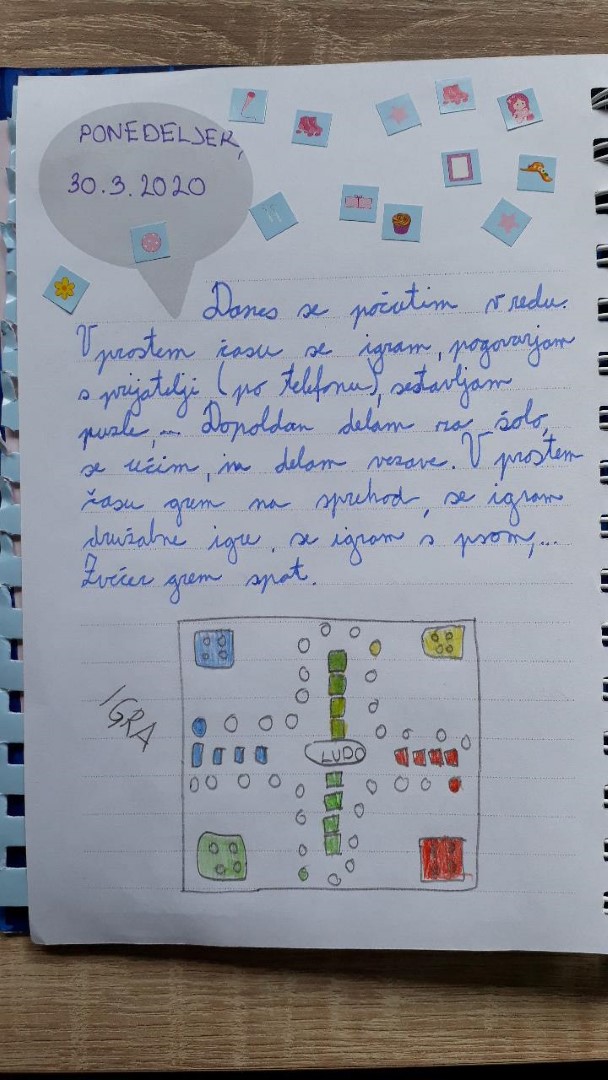 PONEDELJEK,
30.3.2020
Danes se počutim v redu.
V prostem času se igram, pogovarjam
s prijatelji (po telefonu), sestavljam
puzle,... Dopoldan delam za šolo,
se učim, in delam vezave. V prostem
času grem na sprehod, se igram
družabne igre, se igram s psom,...
Zvečer grem spat.
IGRA
LUDO